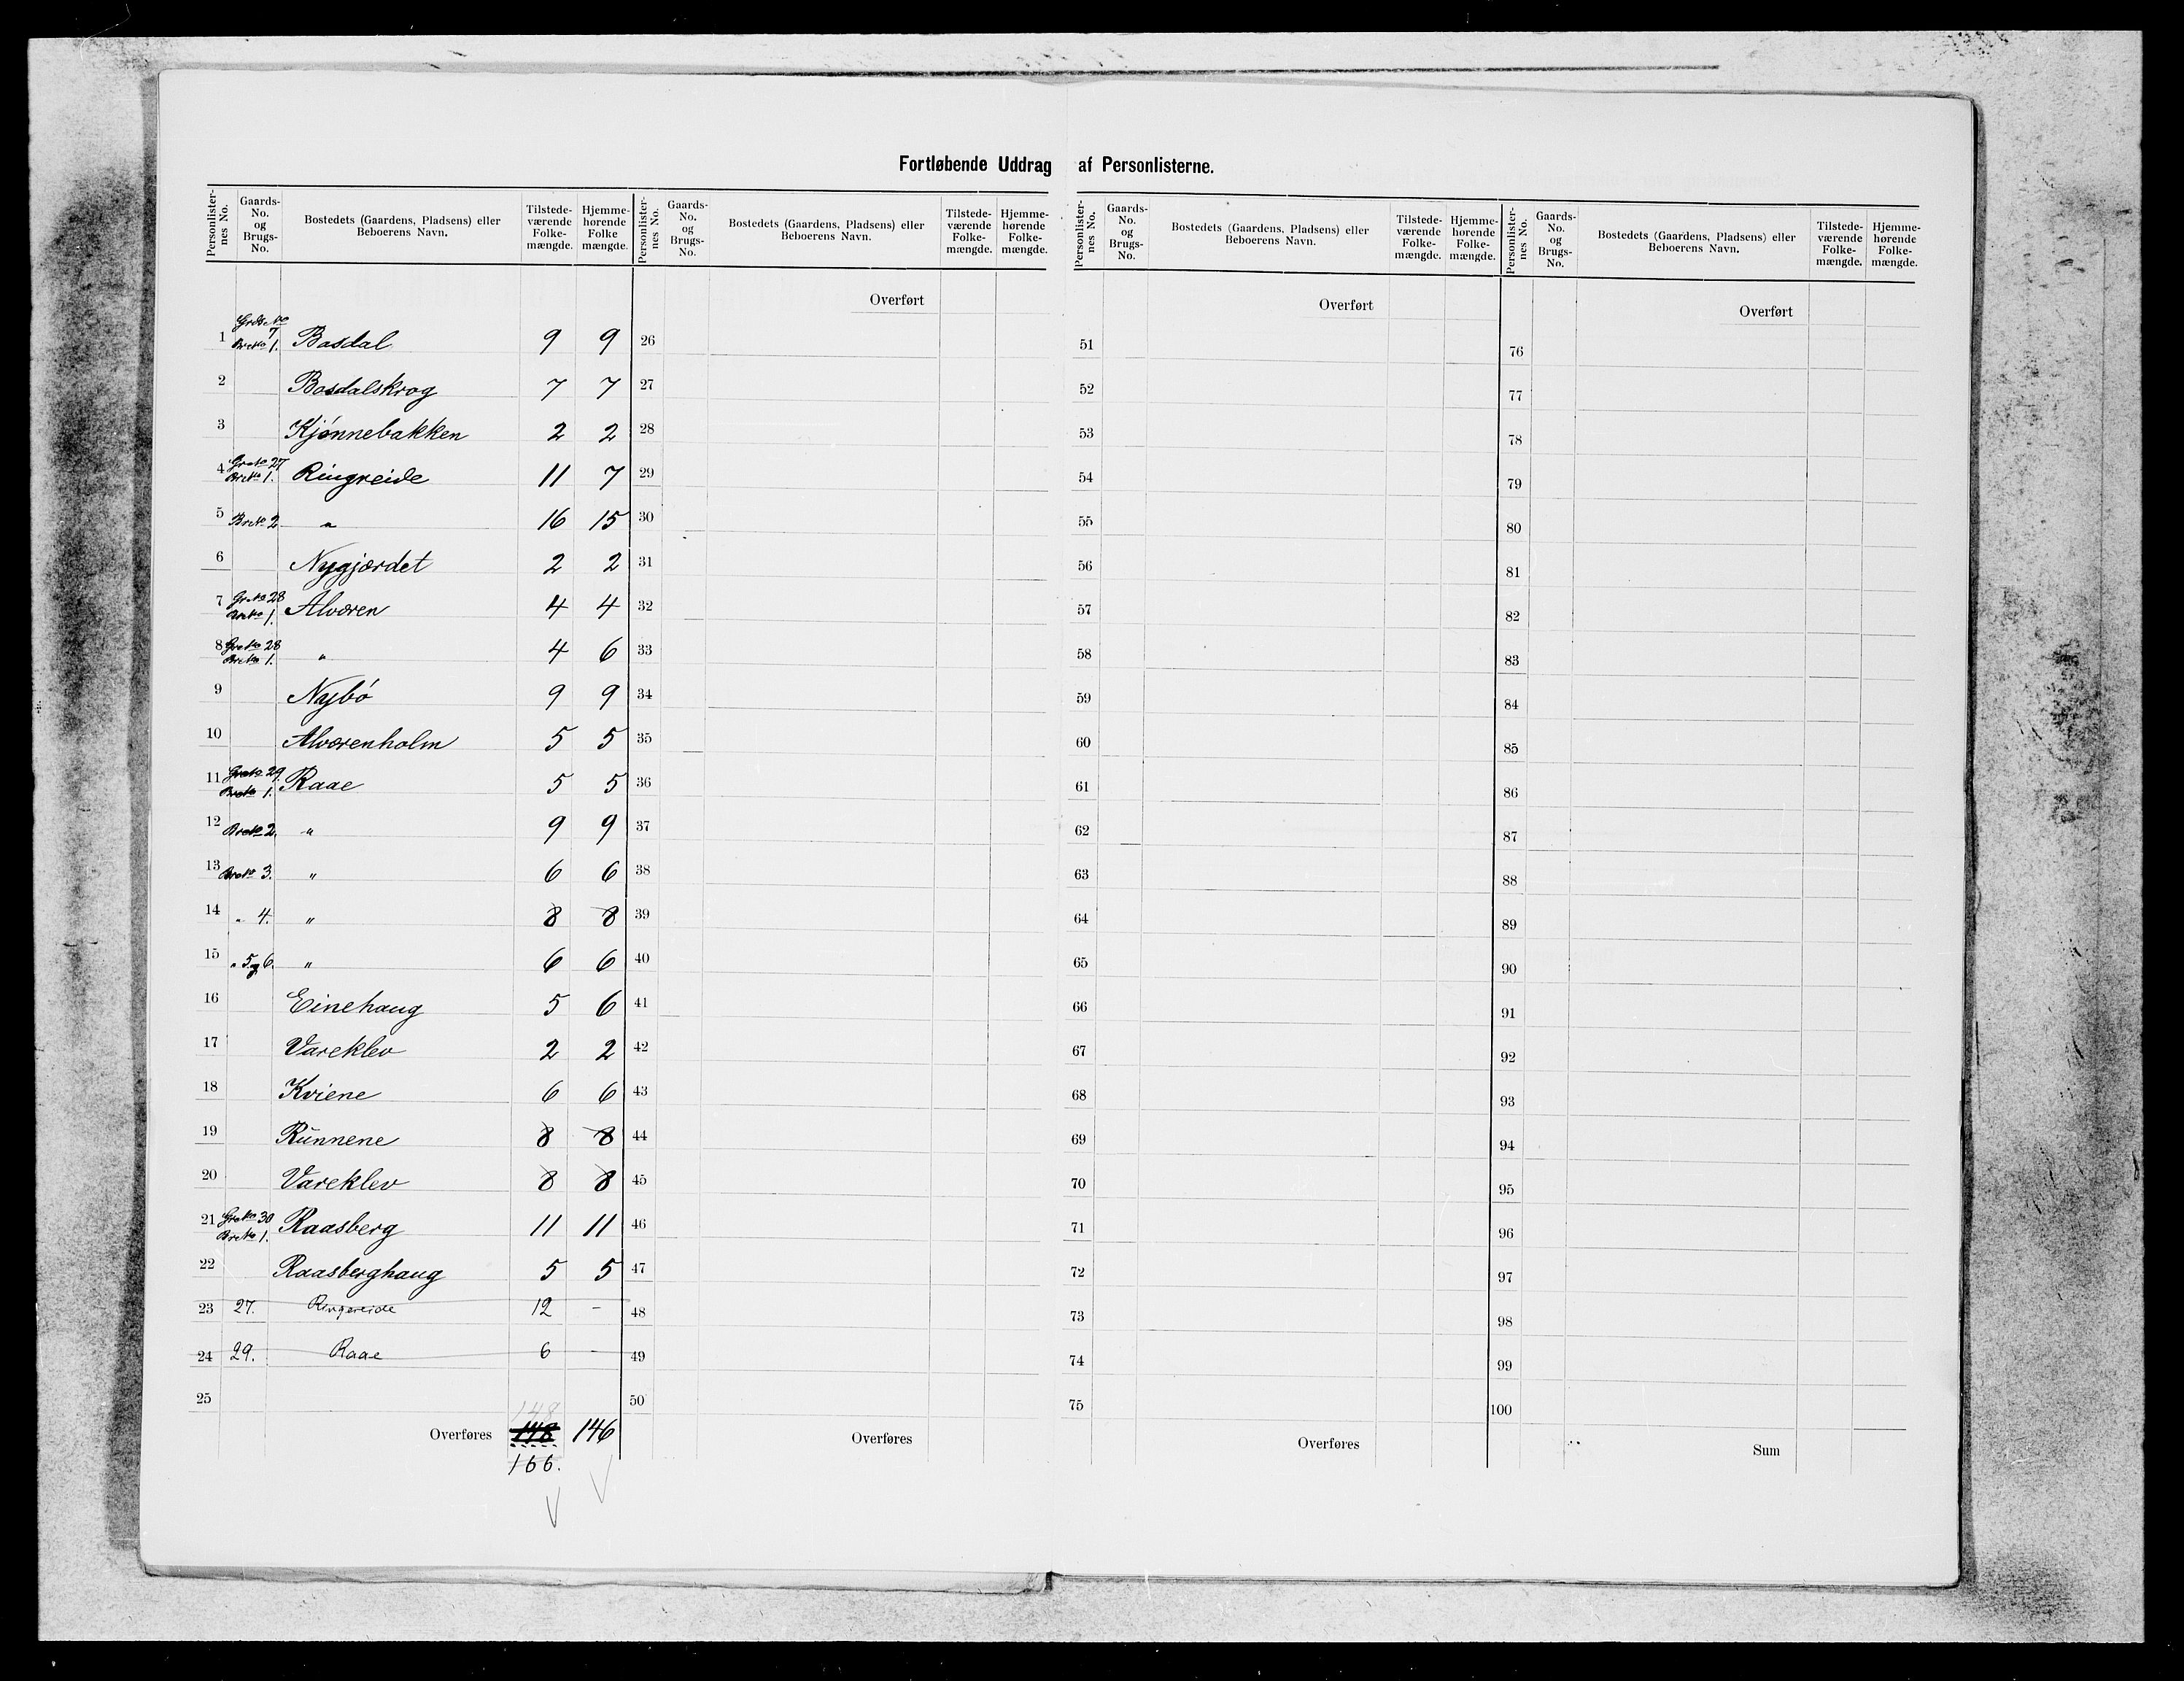 Fortløbende Uddrag af Personlisterne.
Personlister-nes No. Gaards-No. og Brugs-No. Bostedets (Gaardens, Pladsens) eller Beboerens Navn. Tilstede-værende Folke-mængde. Hjemme-hørende Folke mængde.
1 7 1. Basdal 9 9
2 Basdalskrog 7 7
3 Kjønnebakken 2 2
4 Gr No 27 Br No 1. Ringreide 11 7
5 Br No 2 " 16 15
6 Nygjærdet 2 2
7 Gr No 28 Br No 1. Alværen 4 4
8 Gr No 28 Br No 1. " 4 6
9 Nybø 9 9
10 Alværenholm 5 5
11 Gr No 29. Br No 1. Raae 5 5
12 Br No 2. " 9 9
13 Br No 3. " 6 6
14 " 4. " 8 8
15 " 5 og 6. " 6 6
16 Einehaug 5 6
17 Vareklev 2 2
18 Kviene 6 6
19 Runnene 8 8
20 Vareklev 8 8
21 Gr No 30 Br No 1. Raasberg 11 11
22 Raasberghaug 5 5
23 27. Ringereide 12 –
24 29. Raae 6 –
25
148
Overføres 148 146
166.
Personlister-nes No. Gaards-No. og Brugs-No. Bostedets (Gaardens, Pladsens) eller Beboerens Navn. Tilstede-værende Folke-mængde. Hjemme-hørende Folke-mængde.
Overført
26
27
28
29
30
31
32
33
34
35
36
37
38
39
40
41
42
43
44
45
46
47
48
49
50
Overføres
Personlister-nes No. Gaards-No. og Brugs-No. Bostedets (Gaardens, Pladsens) eller Beboerens Navn. Tilstede-værende Folke-mængde. Hjemme-hørende Folke-mængde.
Overført
51
52
53
54
55
56
57
58
59
60
61
62
63
64
65
66
67
68
69
70
71
72
73
74
75
Overføres
Personlister-nes No. Gaards-No. og Brugs-No. Bostedets (Gaardens, Pladsens) eller Beboerens Navn. Tilstede-værende Folke-mængde. Hjemme-hørende Folke-mængde.
Overført
76
77
78
79
80
81
82
83
84
85
86
87
88
89
90
91
92
93
94
95
96
97
98
99
100
Sum